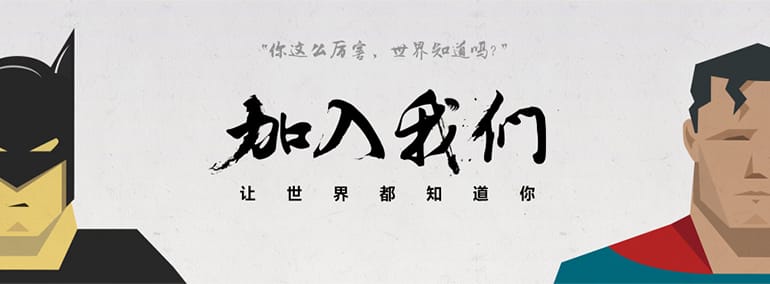 “你这么厉害，世界知道吗?”
加入我们
让世界都知道你